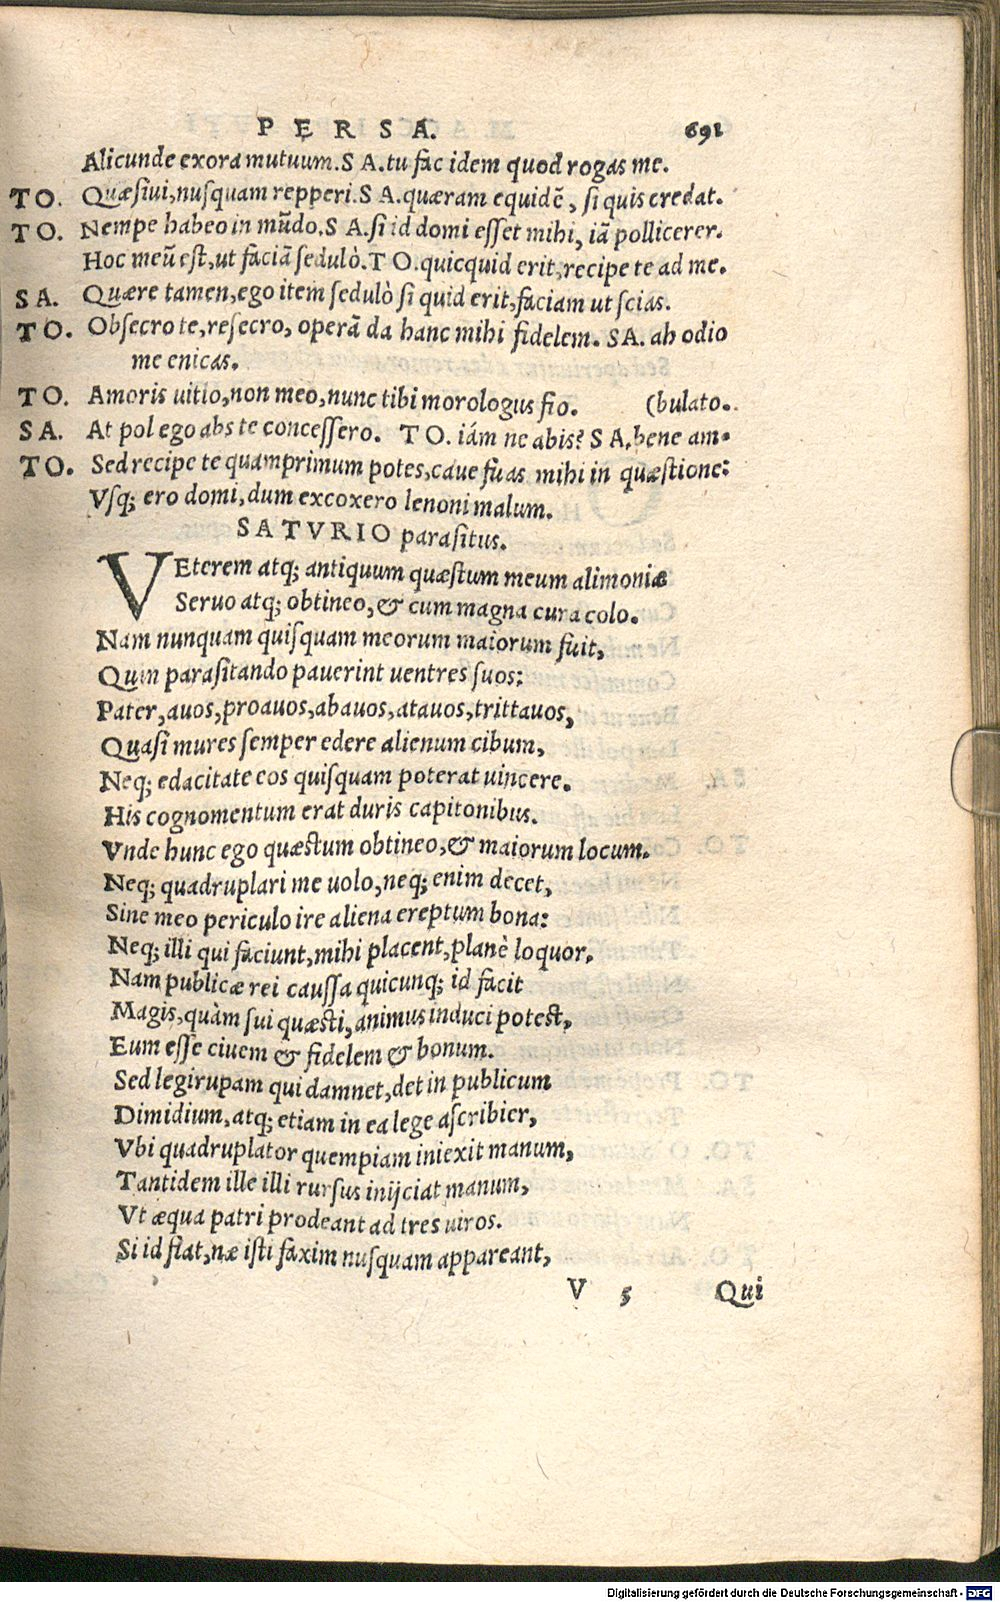 PERSA. 691
Alicunde exora mutuum. SA. tu fac idem quod rogas me.
TO. Quæsivi, nusquam repperi. SA. quæram equidẽ, si quis credat.
TO. Nempe habeo in mũdo. SA. si id domi esset mihi, iã pollicerer.
Hoc meũ est, ut faciã sedulò. TO. quicquid erit, recipe te ad me.
SA. Quære tamen, ego item sedulò si quid erit, faciam ut scias.
TO. Obsecro te, resecro, operã da hanc mihi fidelem. SA. ah odio
me enicas.
TO. Amoris uitio, non meo, nunc tibi morologus fio. (bulato.
SA. At pol ego abs te concessero. TO. iám ne abis? SA. bene am-
TO. Sed recipe te quamprimum potes, caue fuas mihi in quæstione:
Vsq; ero domi, dum excoxero lenoni malum.
SATVRIO parasitus.
VEterem atq; antiquum quæstum meum alimoniæ
Seruo atq; obtineo, & cum magna cura colo.
Nam nunquam quisquam meorum maiorum fuit,
Quin parasitando pauerint uentres suos:
Pater, auos, proauos, abauos, atauos, trittauos,
Quasi mures semper edere alienum cibum,
Neq; edacitate eos quisquam poterat uincere.
His cognomentum erat duris capitonibus.
Vnde hunc ego quæstum obtineo, & maiorum locum.
Neq; quadruplari me uolo, neq; enim decet,
Sine meo periculo ire aliena ereptum bona:
Neq; illi qui faciunt, mihi placent, planè loquor.
Nam publicæ rei caussa quicunq; id facit
Magis, quàm sui quæsti, animus induci potest,
Eum esse ciuem & fidelem & bonum.
Sed legirupam qui damnet, det in publicum
Dimidium, atq; etiam in ea lege ascribier,
Vbi quadruplator quempiam iniexit manum,
Tantidem ille illi rursus inijciat manum,
Vt æqua patri prodeant ad tres uiros.
Si id fiat, næ isti faxim nusquam appareant,
V 5 Qui
Digitalisierung gefördert durch die Deutsche Forschungsgemeinschaft - DFG